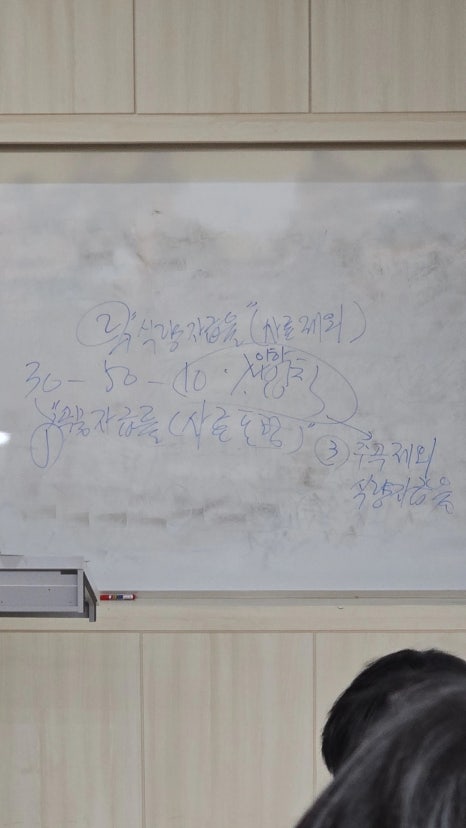 ② "식량자급율" (사료제외)
30 - 50 - (10 ·
① "곡물자급률 (사료포함)"
③ 주곡제외
식량자급율